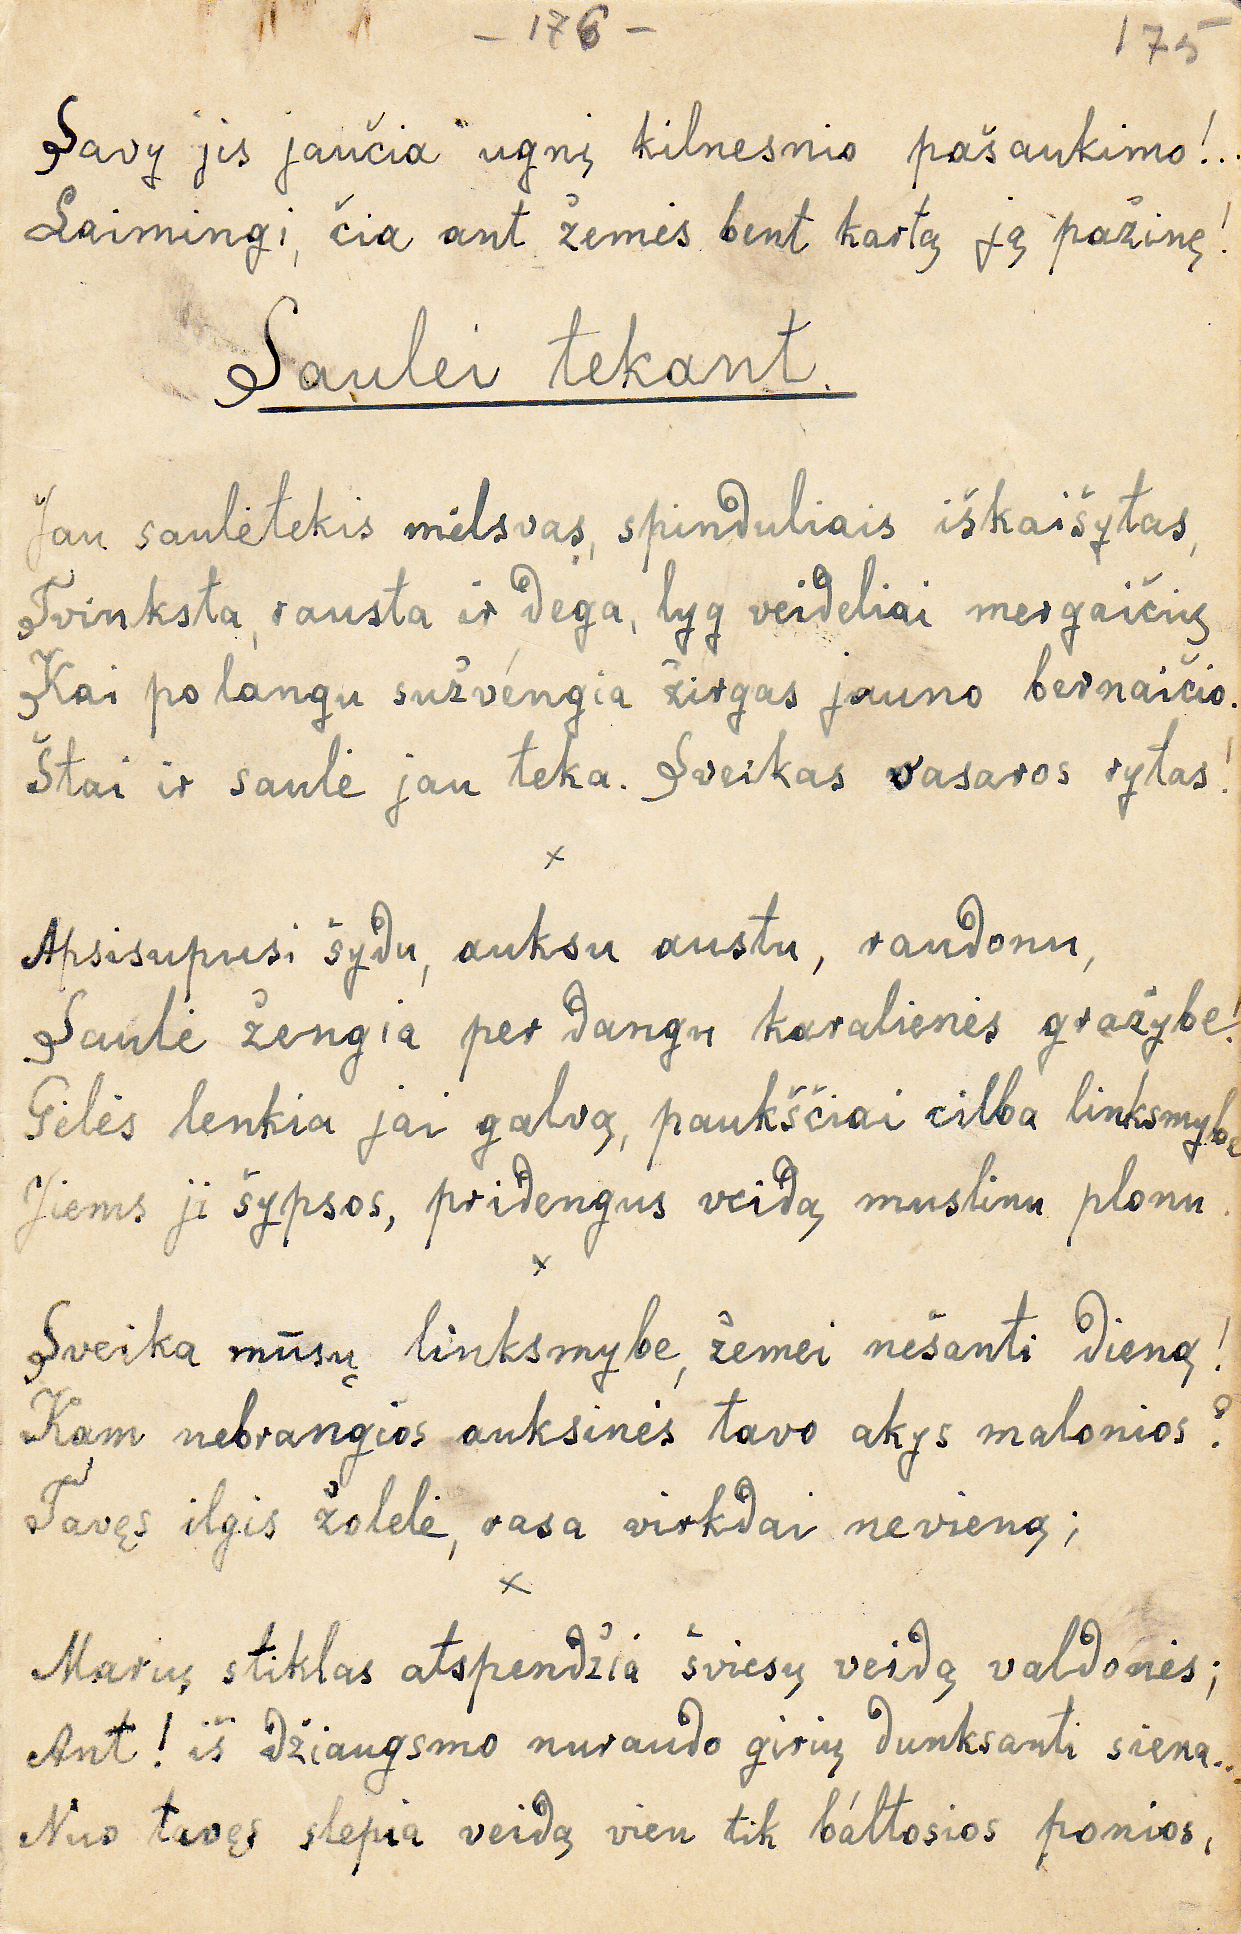 - 176 -
175
Savy jis jaučia ugnį kilnesnio pašaukimo!..
Laimingi, čia ant žemės bent kartą ją pažinę!
Saulei tekant.
Jau saulėtekis mėlsvas, spinduliais iškaišytas,
Tvinksta, rausta ir dega, lyg veideliai mergaičių
Kai po langu sužvengia žirgas jauno bernaičio.
Štai ir saulė jau teka. Sveikas vasaros rytas!
x
Apsisupusi šydu, auksu austu, raudonu,
Saulė žengia per dangų karalienės grožybe!
Gėlės lenkia jai galvą, paukščiai čilba linksmybę
Jiems ji šypsos, pridengus veidą muslinu plonu.
x
Sveika mūsų linksmybe, žemei nešanti dieną!
Kam nebrangios auksinės tavo akys malonios?
Tavęs ilgis žolelė, rasa virkdai nevieną;
x
Marių stiklas atspendžia šviesų veidą valdonės;
Ant! iš džiaugsmo nuraudo girių dunksanti siena...
Nuo tavęs slepia veidą vien tik báltosios ponios,